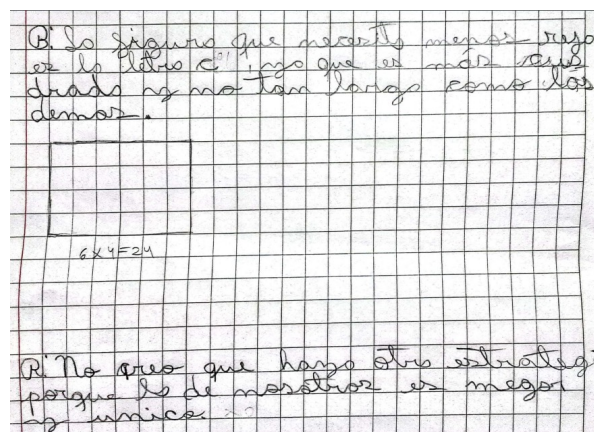 R: La figura que necesita menos rejo
es la letra c' ya que es más cua
drado y no tan largo como las
demas.
6x4=24
R: No creo que haya otra estrategi
porque la de nosotros es megor
y unica.